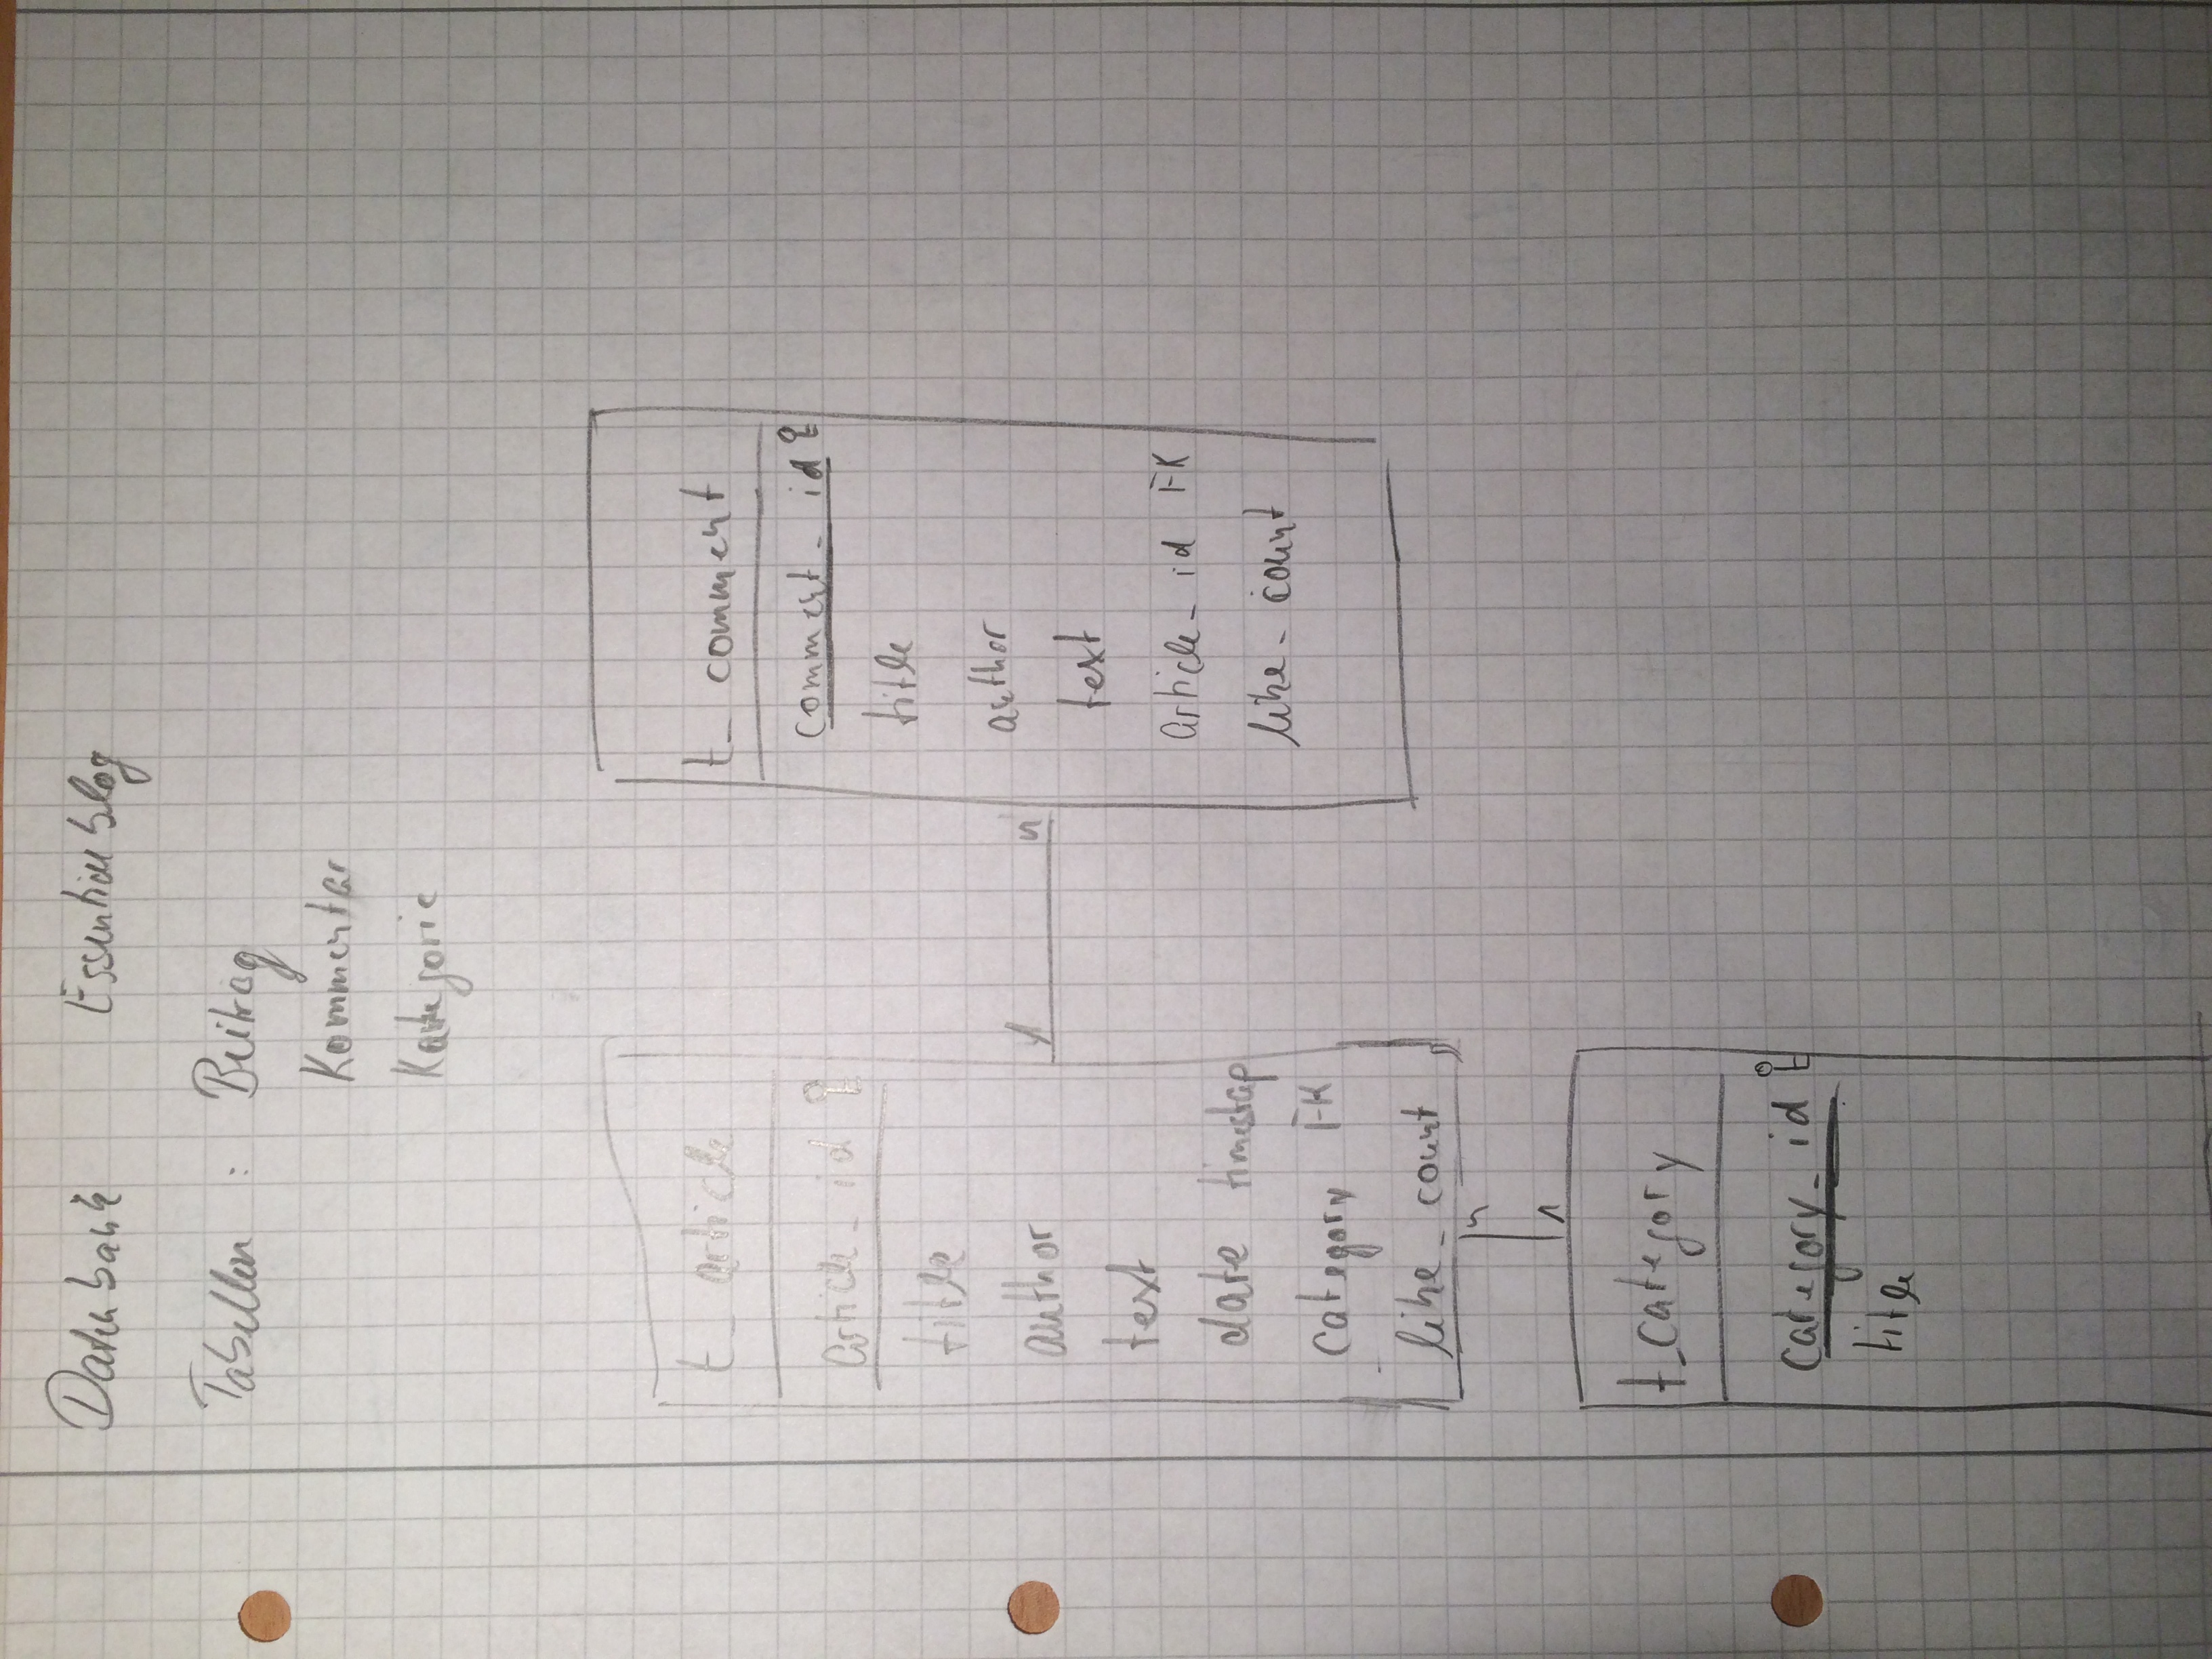 Datenbank Essentialblog
Tabellen : Beitrag
Kommentar
Kategorie
t_ article
article_id
title
author
text
date timestap
category FK
like_count
1 n
t_ comment
comment_id
title
author
text
article_id FK
like_count
n
1
t_category
category_id
title